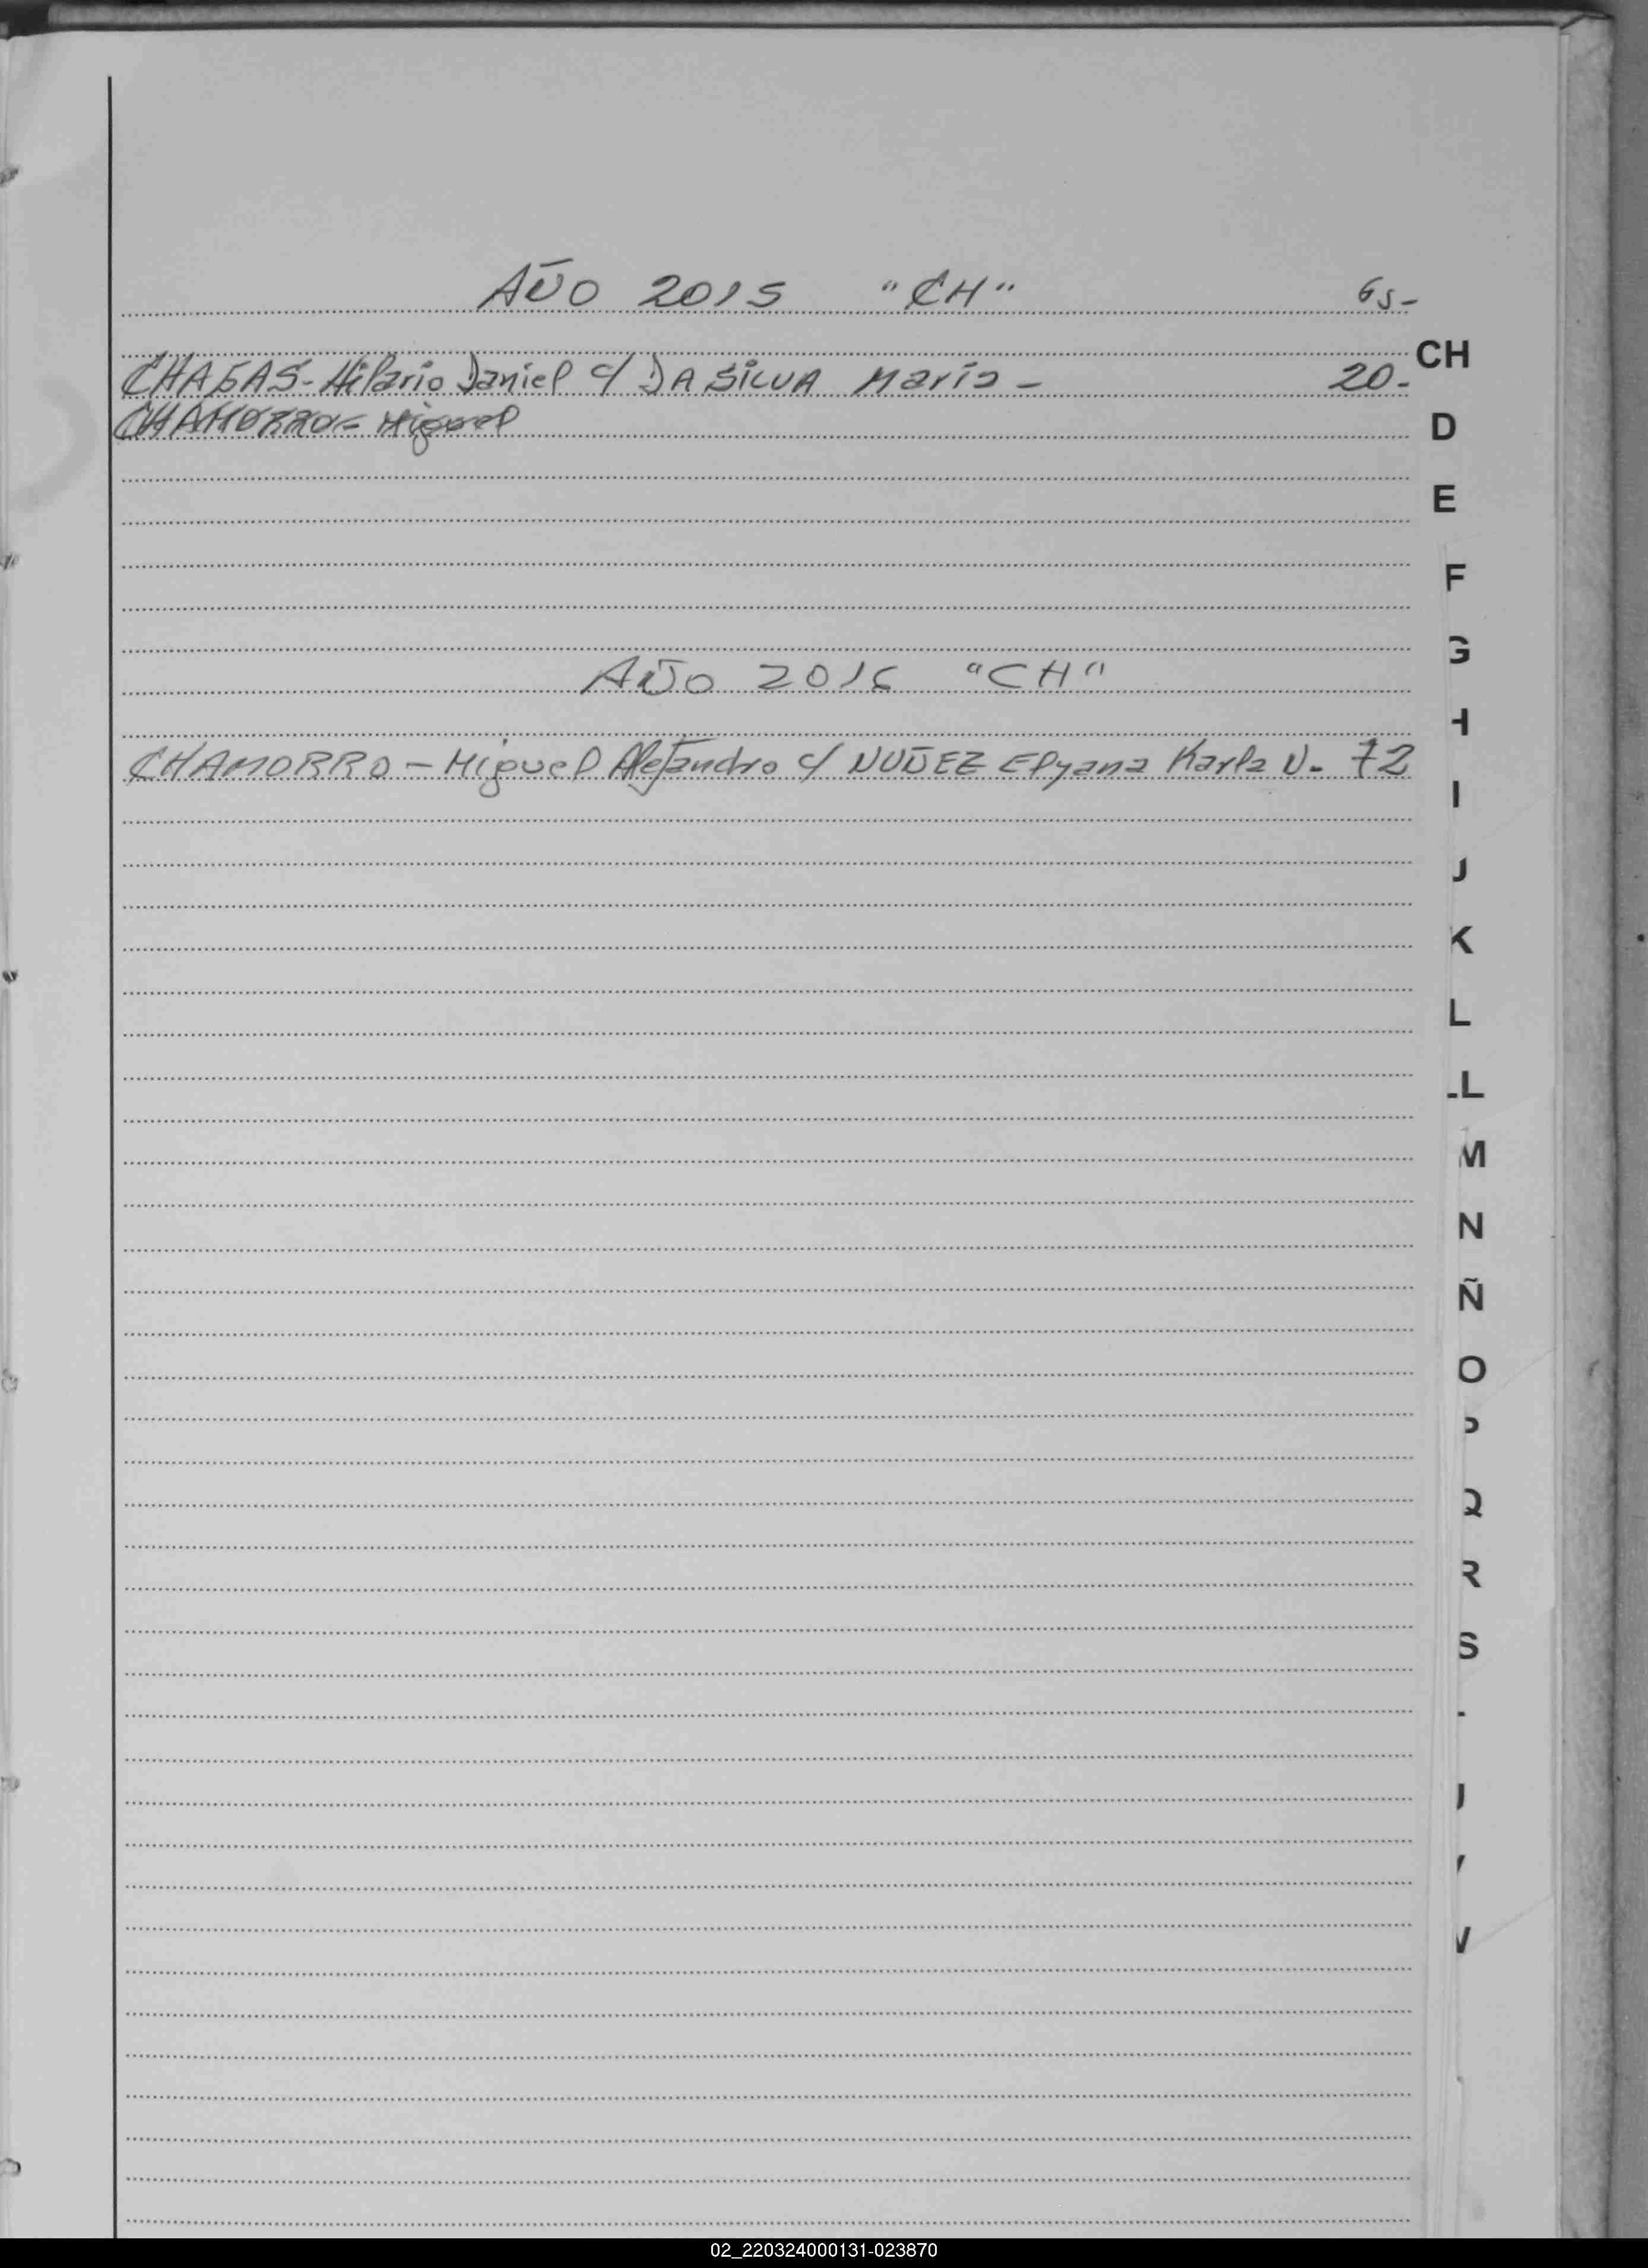 AÑO 2015 "CH" Gs-
CH
CHAGAS - Hilario Daniel c/ DA SILVA Maria - 20.
CHAMORRO = Miguel
D
E
F
G
AÑO 2016 "CH"
H
CHAMORRO - Miguel Alejandro c/ NUÑEZ Elyana Karla N. 72
I
J
K
L
LL
M
N
Ñ
O
P
Q
R
S
U
V
W
02_220324000131-023870